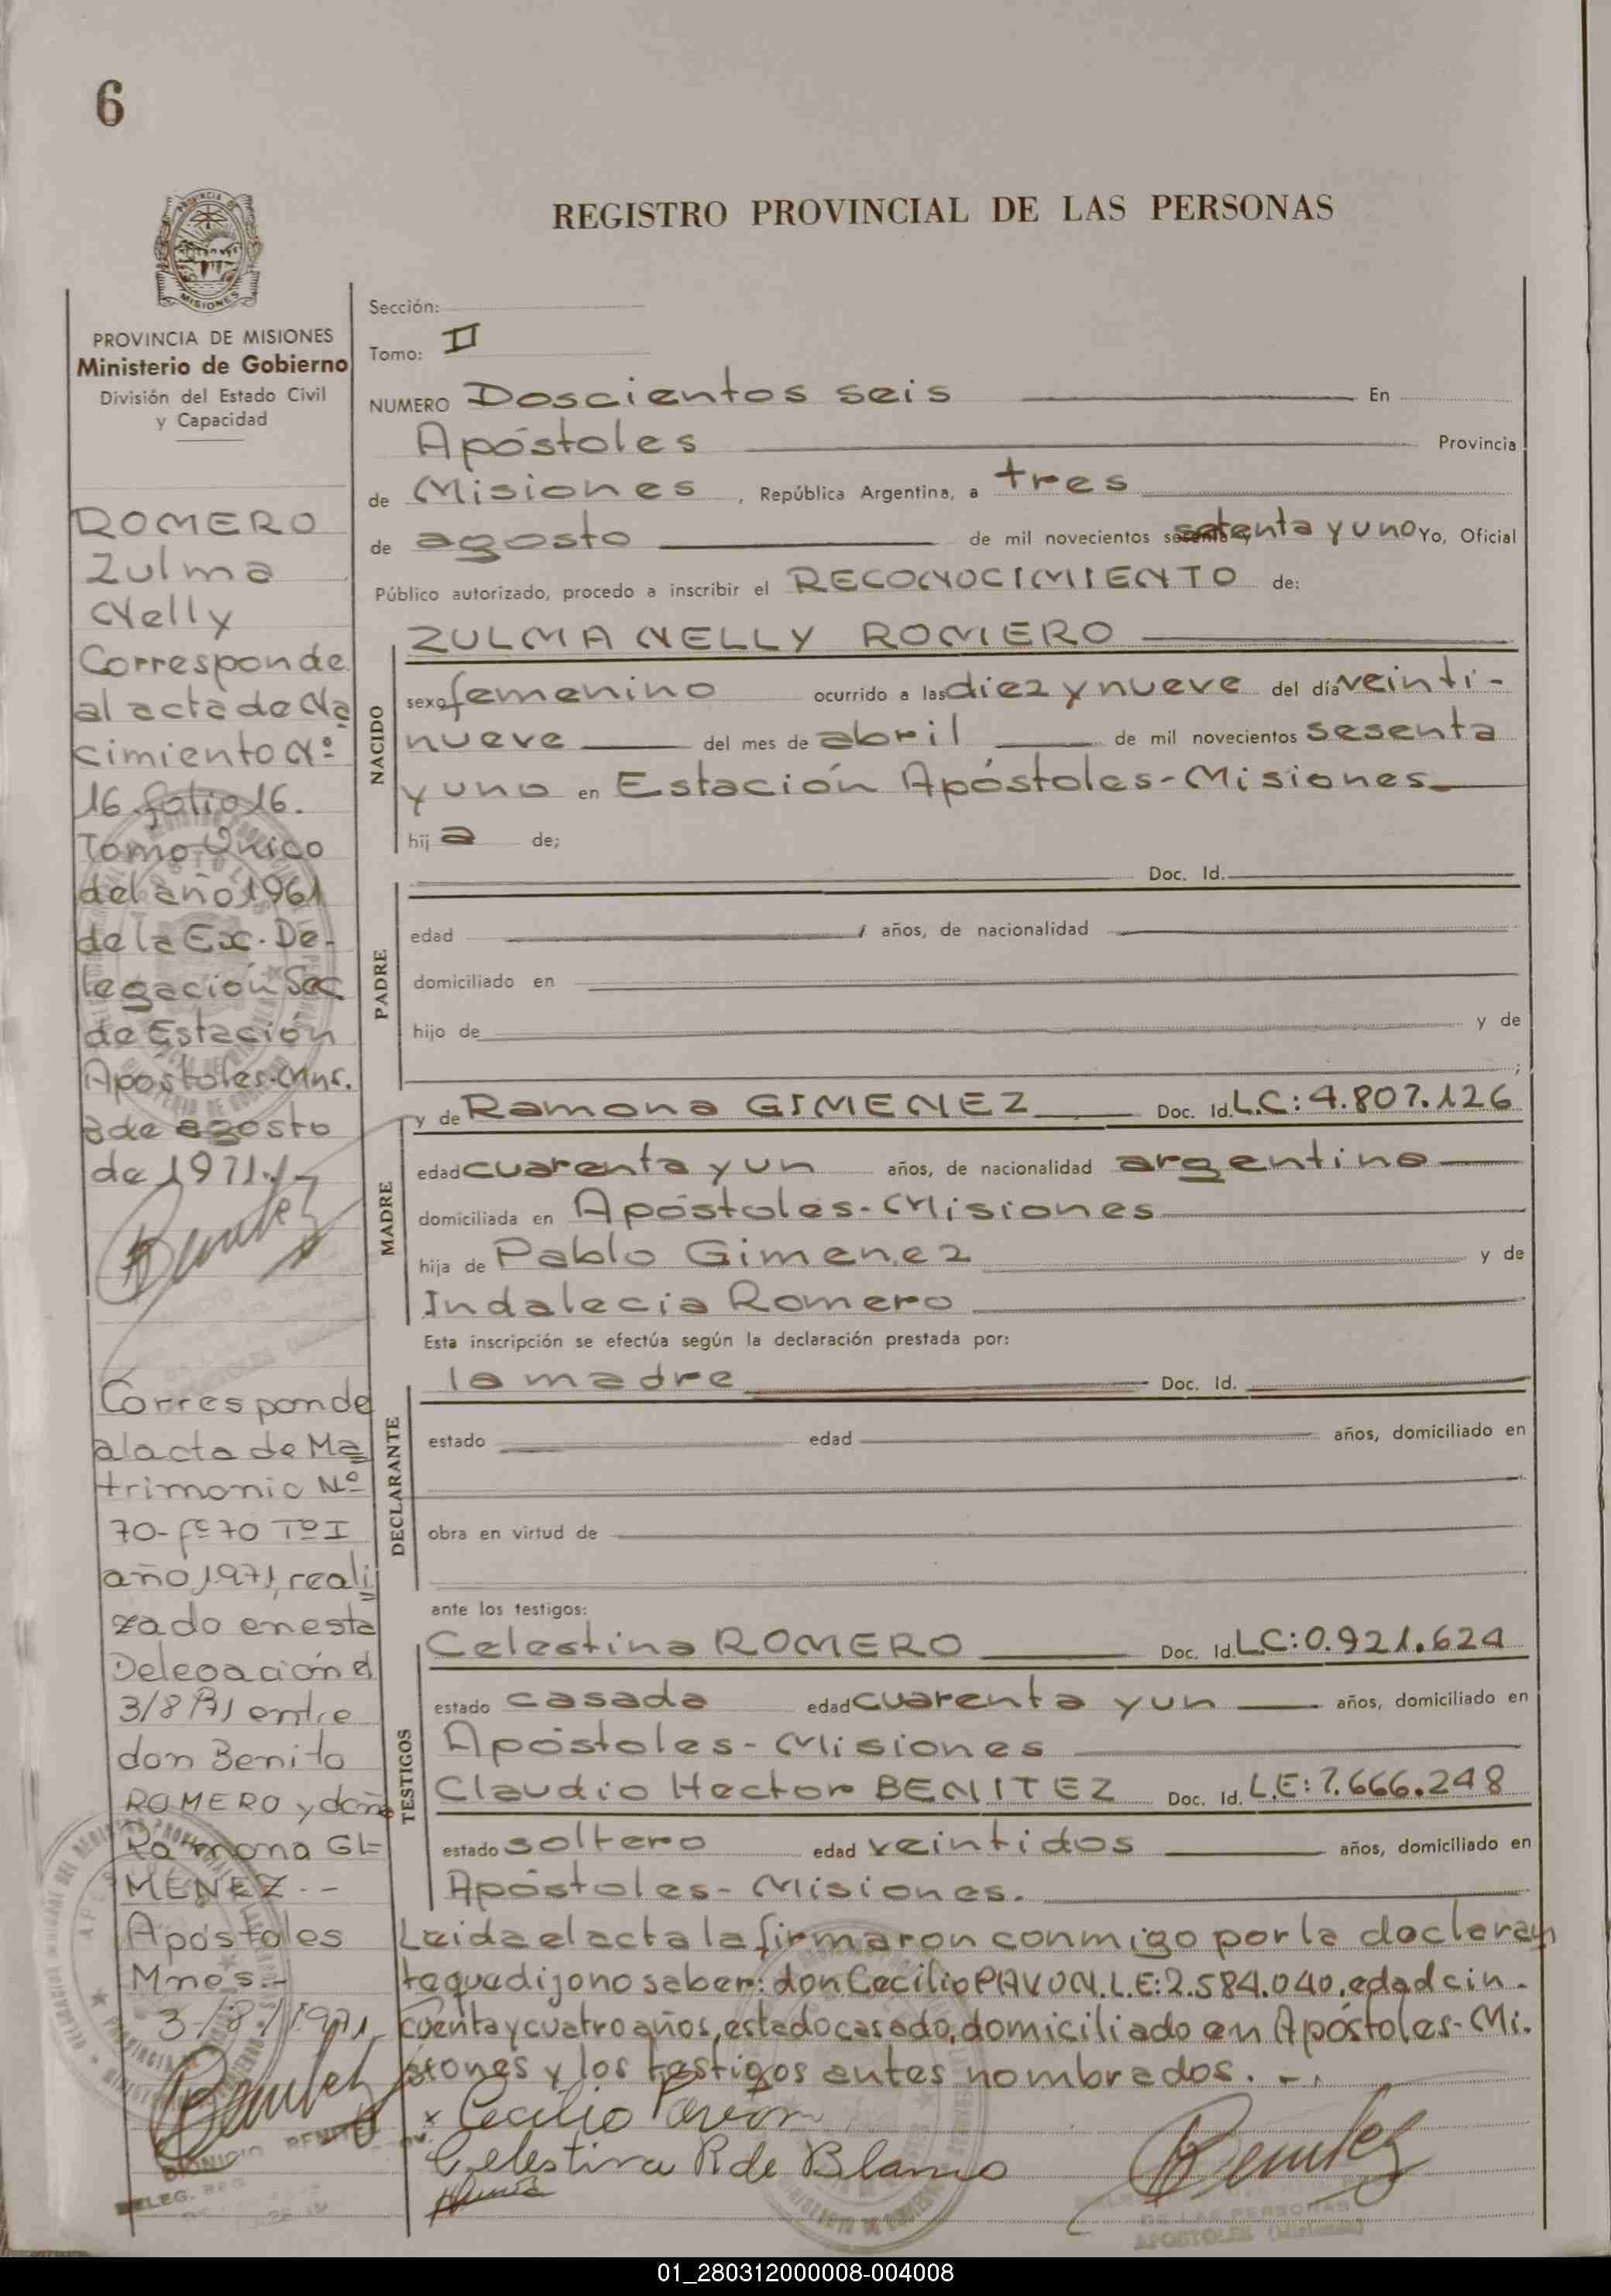 6
REGISTRO PROVINCIAL DE LAS PERSONAS
PROVINCIA DE MISIONES
Ministerio de Gobierno
División del Estado Civil
y Capacidad
ROMERO
Zulma
Nelly
Corresponde
al acta de Na
cimiento Nº
16 folio 16.
Tomo Unico
del año 1961
de la Ex. De-
legación Sec
de Estación
Apóstoles. Mns.
3 de agosto
de 1971.-
Benitez
Corresponde
al acta de Ma
trimonio Nº
70-Fº 70 Tº I
año 1971, reali
zado en esta
Delegación el
3/8/71 entre
don Benito
ROMERO y doña
Ramona GI=
MENEZ.-
Apóstoles
Mnes.-
3/8/1971
Benitez
Sección:
Tomo: II
NUMERO Doscientos seis En
Apóstoles Provincia
de Misiones, República Argentina, a tres
de agosto de mil novecientos setenta y uno Yo, Oficial
Público autorizado, procedo a inscribir el RECONOCIMIENTO de:
NACIDO
ZULMA NELLY ROMERO
sexo femenino ocurrido a las diez y nueve del día veinti-
nueve del mes de abril de mil novecientos sesenta
y uno en Estación Apóstoles-Misiones
hij a de;
PADRE
Doc. Id.
edad años, de nacionalidad
domiciliado en
hijo de y de
;
MADRE
y de Ramona GIMENEZ Doc. Id. L.C: 4.807.126
edad cuarenta y un años, de nacionalidad argentina
domiciliada en Apóstoles-Misiones
hija de Pablo Gimenez y de
Indalecia Romero
Esta inscripción se efectúa según la declaración prestada por:
DECLARANTE
la madre Doc. Id.
estado edad años, domiciliado en
obra en virtud de
ante los testigos:
TESTIGOS
Celestina ROMERO Doc. Id. LC: 0.921.624
estado casada edad cuarenta y un años, domiciliado en
Apóstoles-Misiones
Claudio Hector BENITEZ Doc. Id. L.E: 7.666.248
estado soltero edad veintidos años, domiciliado en
Apóstoles-Misiones.
Leida el acta la firmaron conmigo por la declaran
te que dijo no saber: don Cecilio PAVON. L.E: 2.584.040, edad cin-
cuenta y cuatro años, estado casado, domiciliado en Apóstoles-Mi.
siones y los testigos antes nombrados.-.
x Cecilio Pavon
Celestina R de Blanco
Benitez
DE LAS PERSONAS
APOSTOLES (Misiones)
01_280312000008-004008